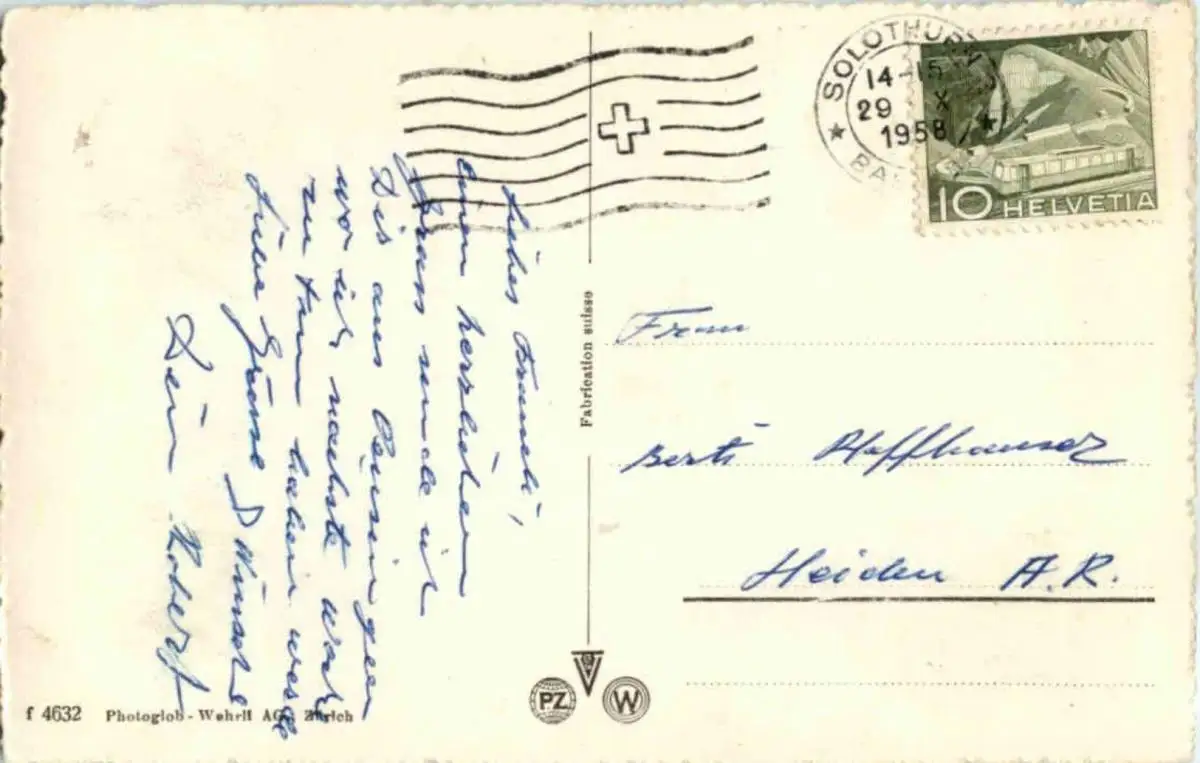 SOLOTHURN
14-15
29 X
1958
10 HELVETIA
Liebes Trameli,
Einen herzlichen
Gruss sende ich
Dir aus
wo ich nächste Woche
zu tun haben werde
Liebe Grüsse & Wünsche
Dein Robert
Fabrication suisse
Frau
Berti Hoffhauser
Heiden A.R.
PZ W
f 4632 Photoglob-Wehrli AG, Zürich